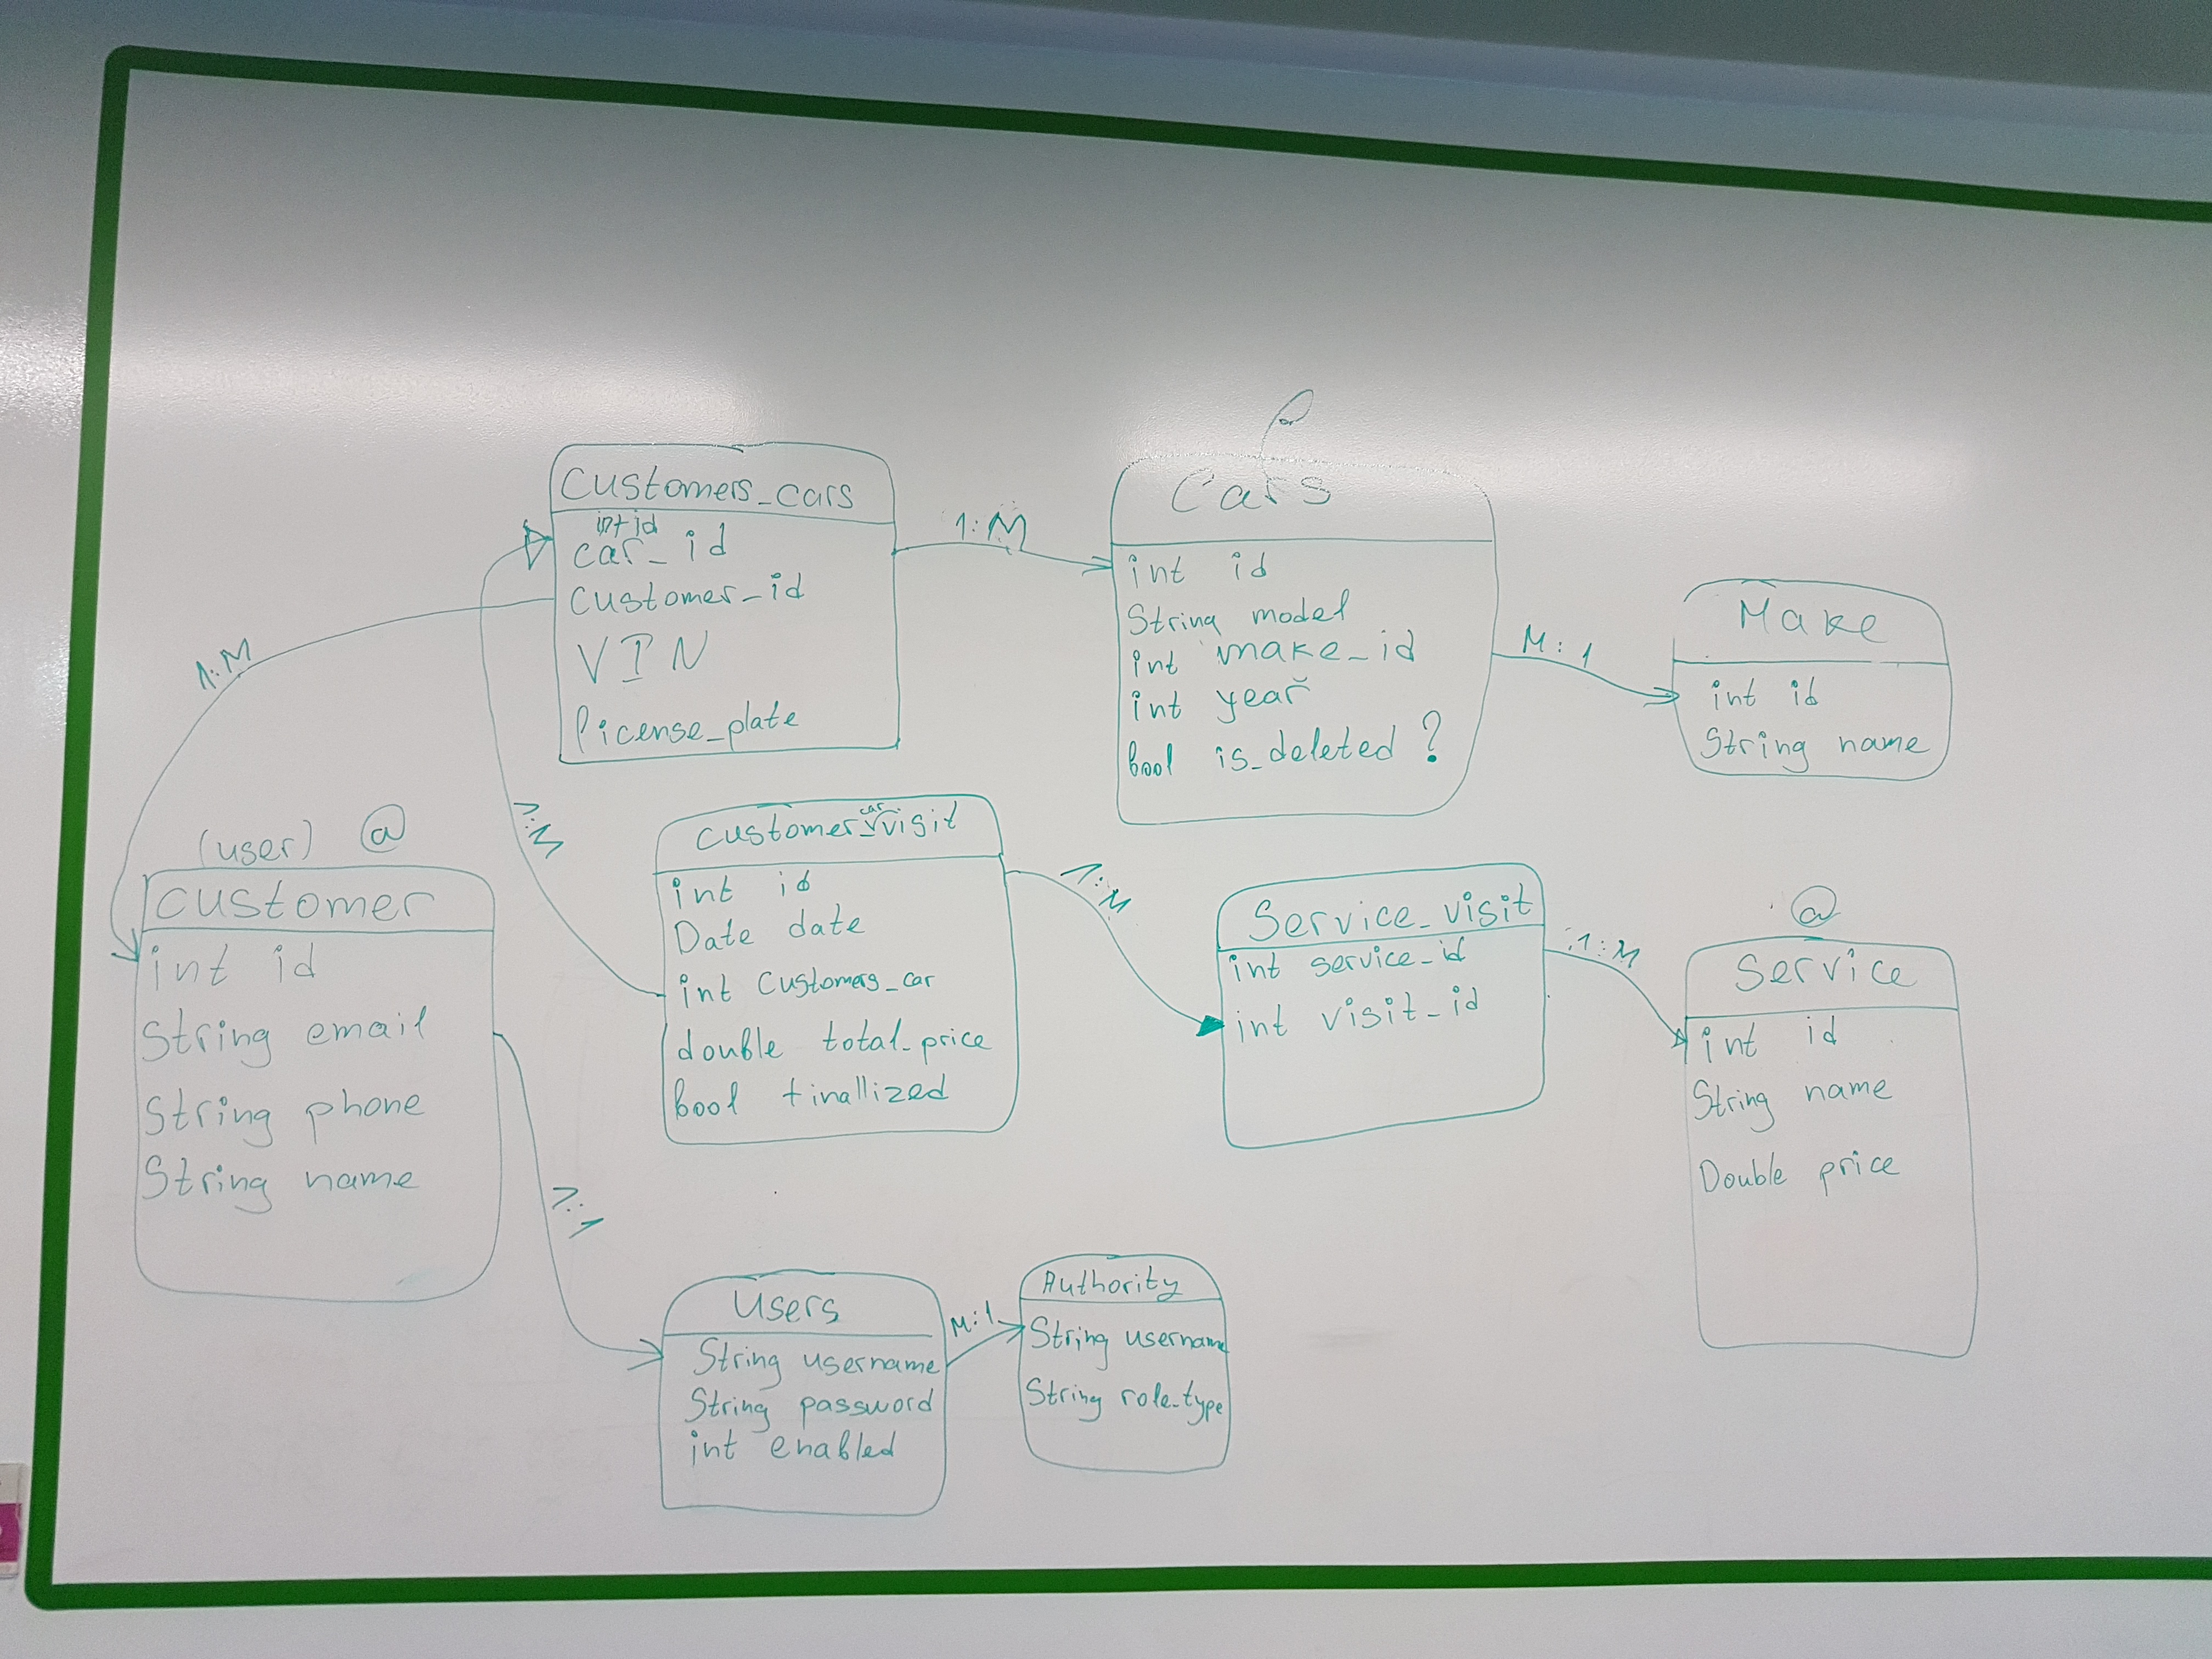 Customers_cars
int id
car_id
customer_id
VIN
license_plate
1:M
Cars
int id
String model
int make_id
int year
bool is_deleted ?
M:1
Make
int id
String name
1:M
(user) @
customer
int id
String email
String phone
String name
1:M
car
customer_visit
int id
Date date
int Customers_car
double total_price
bool finallized
1:M
Service_visit
int service_id
int visit_id
1:M
@
Service
int id
String name
Double price
1:1
Users
String username
String password
int enabled
M:1
Authority
String username
String role_type